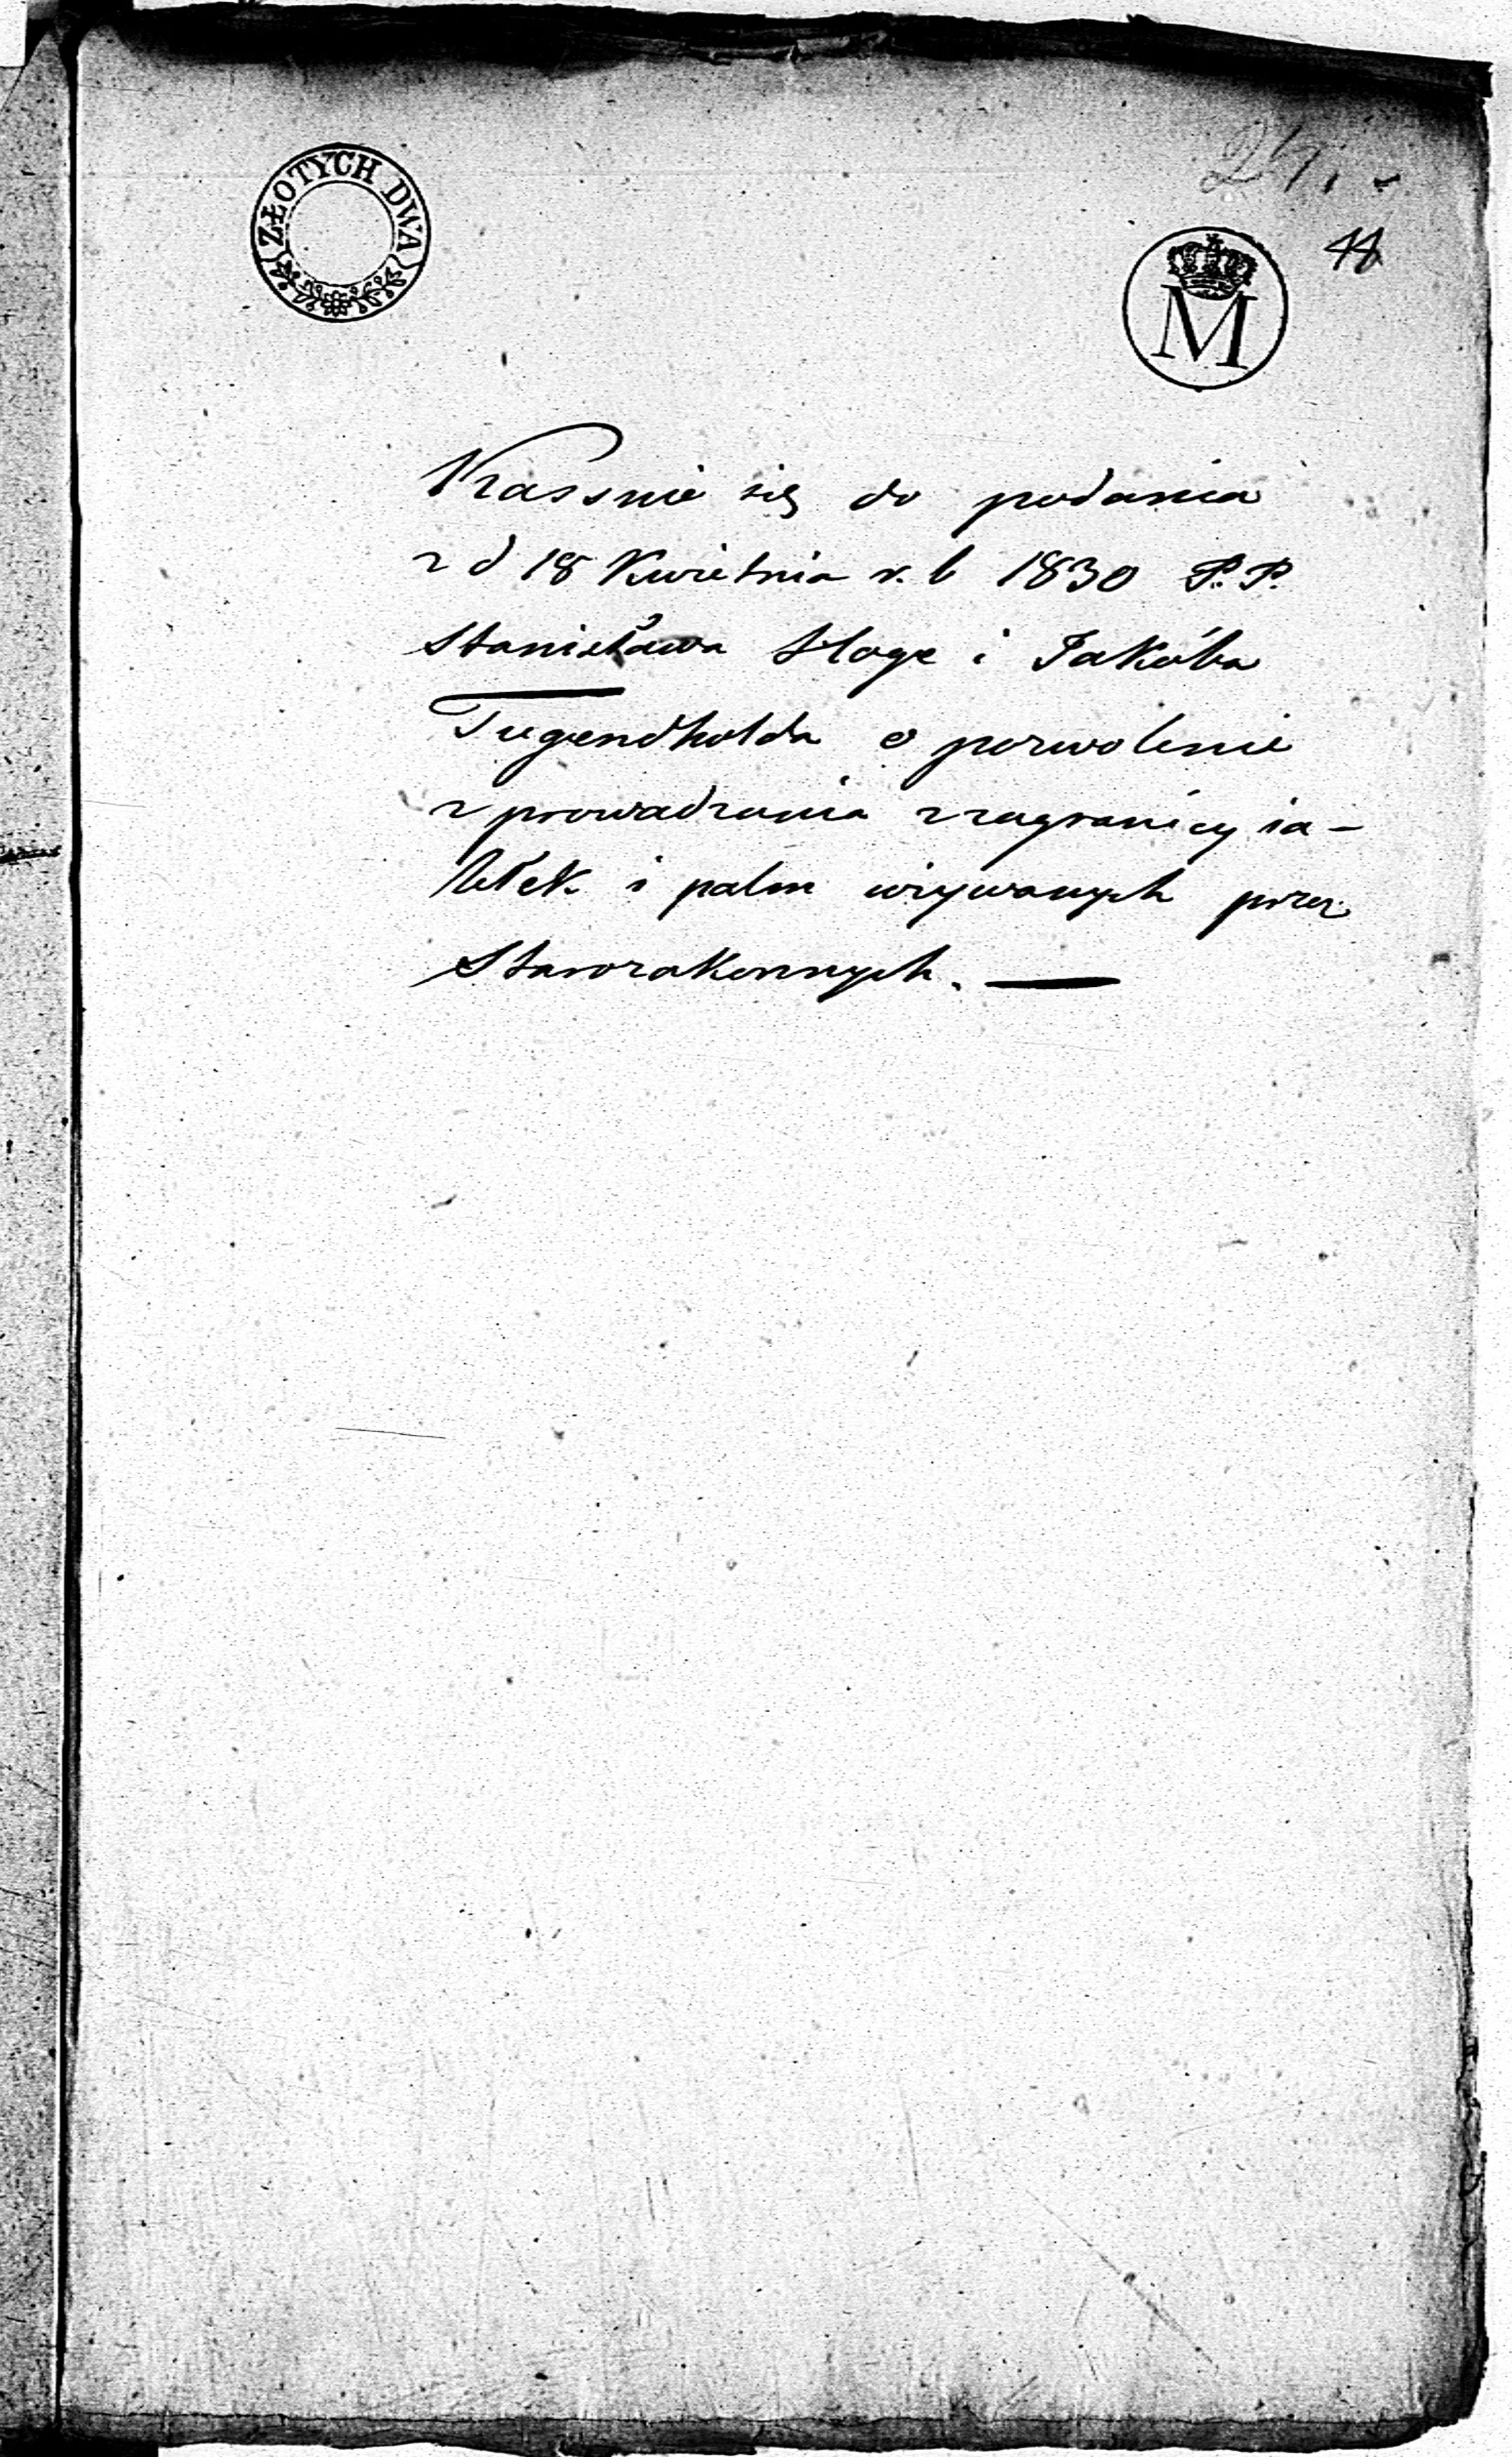 ZŁOTYCH DWA
24.
M
Kassuie się do podania
z d 18 Kwietnia r. b 1830 P. P.
Stanisława Hoge i Jakóba
Tugendholda o pozwolenie
zprowadzania zzagranicy ia-
błek i palm używanych przez
Starozakonnych. —